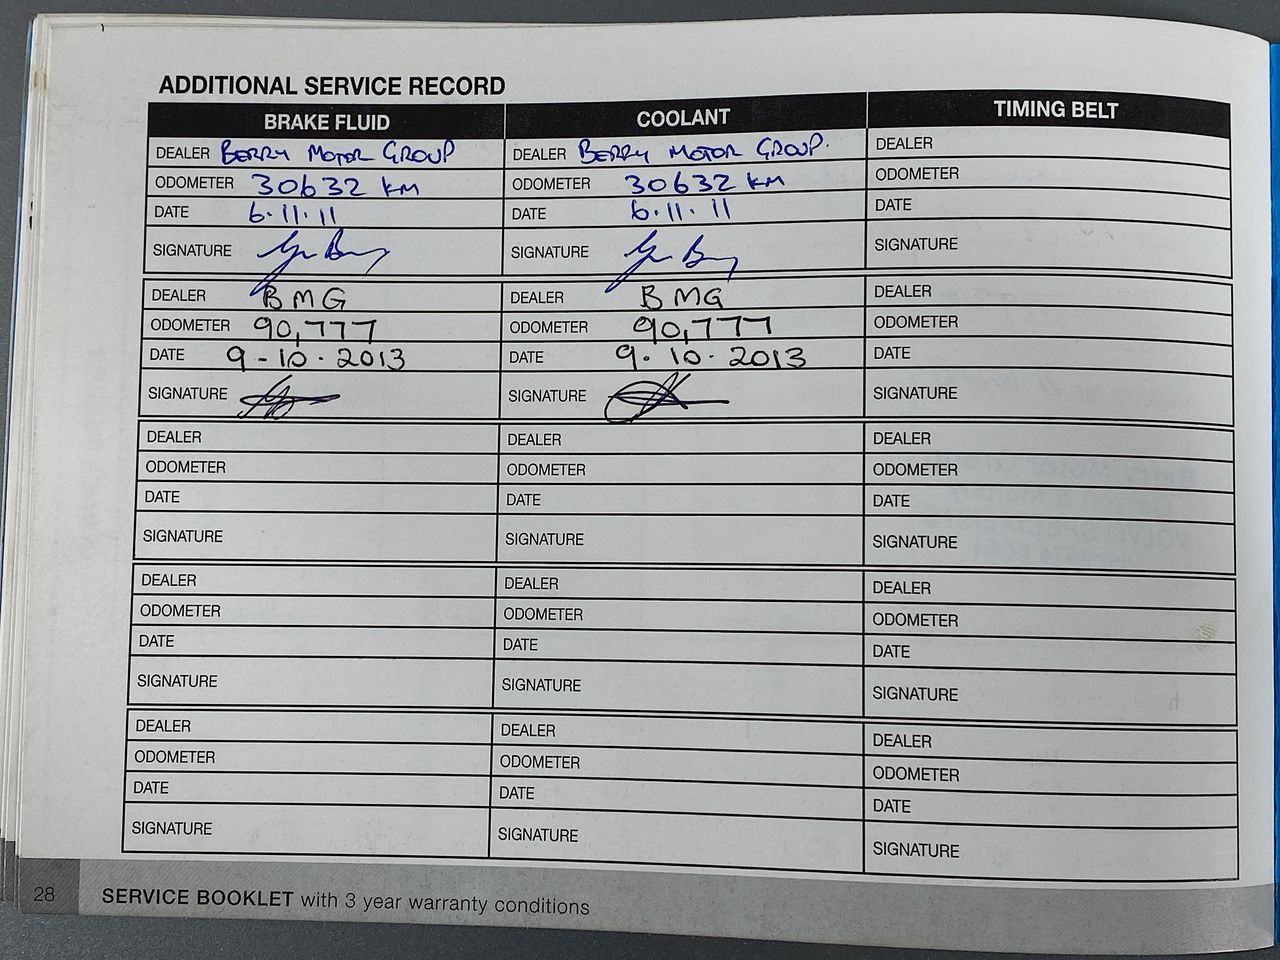 ADDITIONAL SERVICE RECORD
BRAKE FLUID COOLANT TIMING BELT
DEALER BERRY MOTOR GROUP DEALER BERRY MOTOR GROUP. DEALER
ODOMETER 30632 KM ODOMETER 30632 KM ODOMETER
DATE 6.11.11 DATE 6.11.11 DATE
SIGNATURE SIGNATURE SIGNATURE
DEALER BMG DEALER BMG DEALER
ODOMETER 90,777 ODOMETER 90,777 ODOMETER
DATE 9-10.2013 DATE 9.10.2013 DATE
SIGNATURE SIGNATURE SIGNATURE
DEALER DEALER DEALER
ODOMETER ODOMETER ODOMETER
DATE DATE DATE
SIGNATURE SIGNATURE SIGNATURE
DEALER DEALER DEALER
ODOMETER ODOMETER ODOMETER
DATE DATE DATE
SIGNATURE SIGNATURE SIGNATURE
DEALER DEALER DEALER
ODOMETER ODOMETER ODOMETER
DATE DATE DATE
SIGNATURE SIGNATURE SIGNATURE
28 SERVICE BOOKLET with 3 year warranty conditions